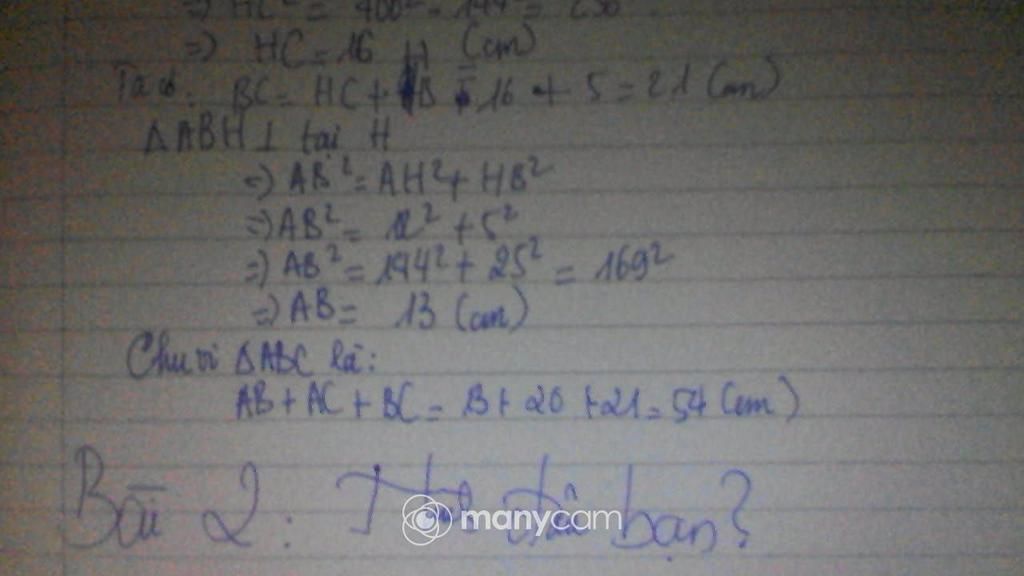 =) HC² = 400² - 144² = 256
=) HC = 16 (cm)
Ta có: BC = HC + HB = 16 + 5 = 21 (cm)
ΔABH ⊥ tại H
=) AB² = AH² + HB²
=) AB² = 12² + 5²
=) AB² = 144² + 25² = 169²
=) AB = 13 (cm)
Chu vi ΔABC là:
AB + AC + BC = 13 + 20 + 21 = 54 (cm)
Bài 2: bạn?
manycam